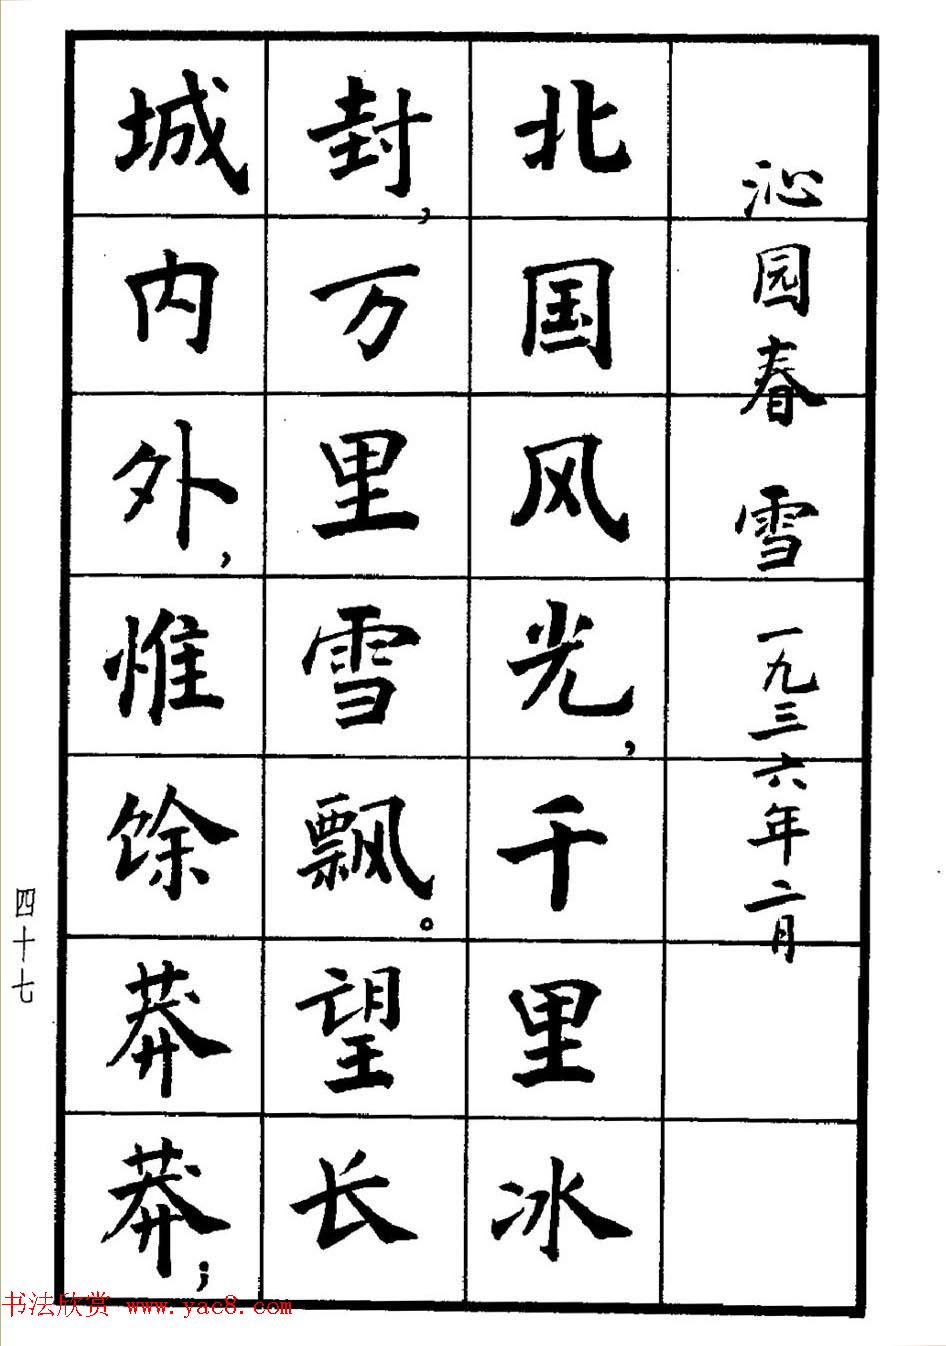 沁园春 雪 一九三六年二月
北国风光，千里冰
封，万里雪飘。望长
城内外，惟馀莽莽；
四十七
书法欣赏 www.yac8.com